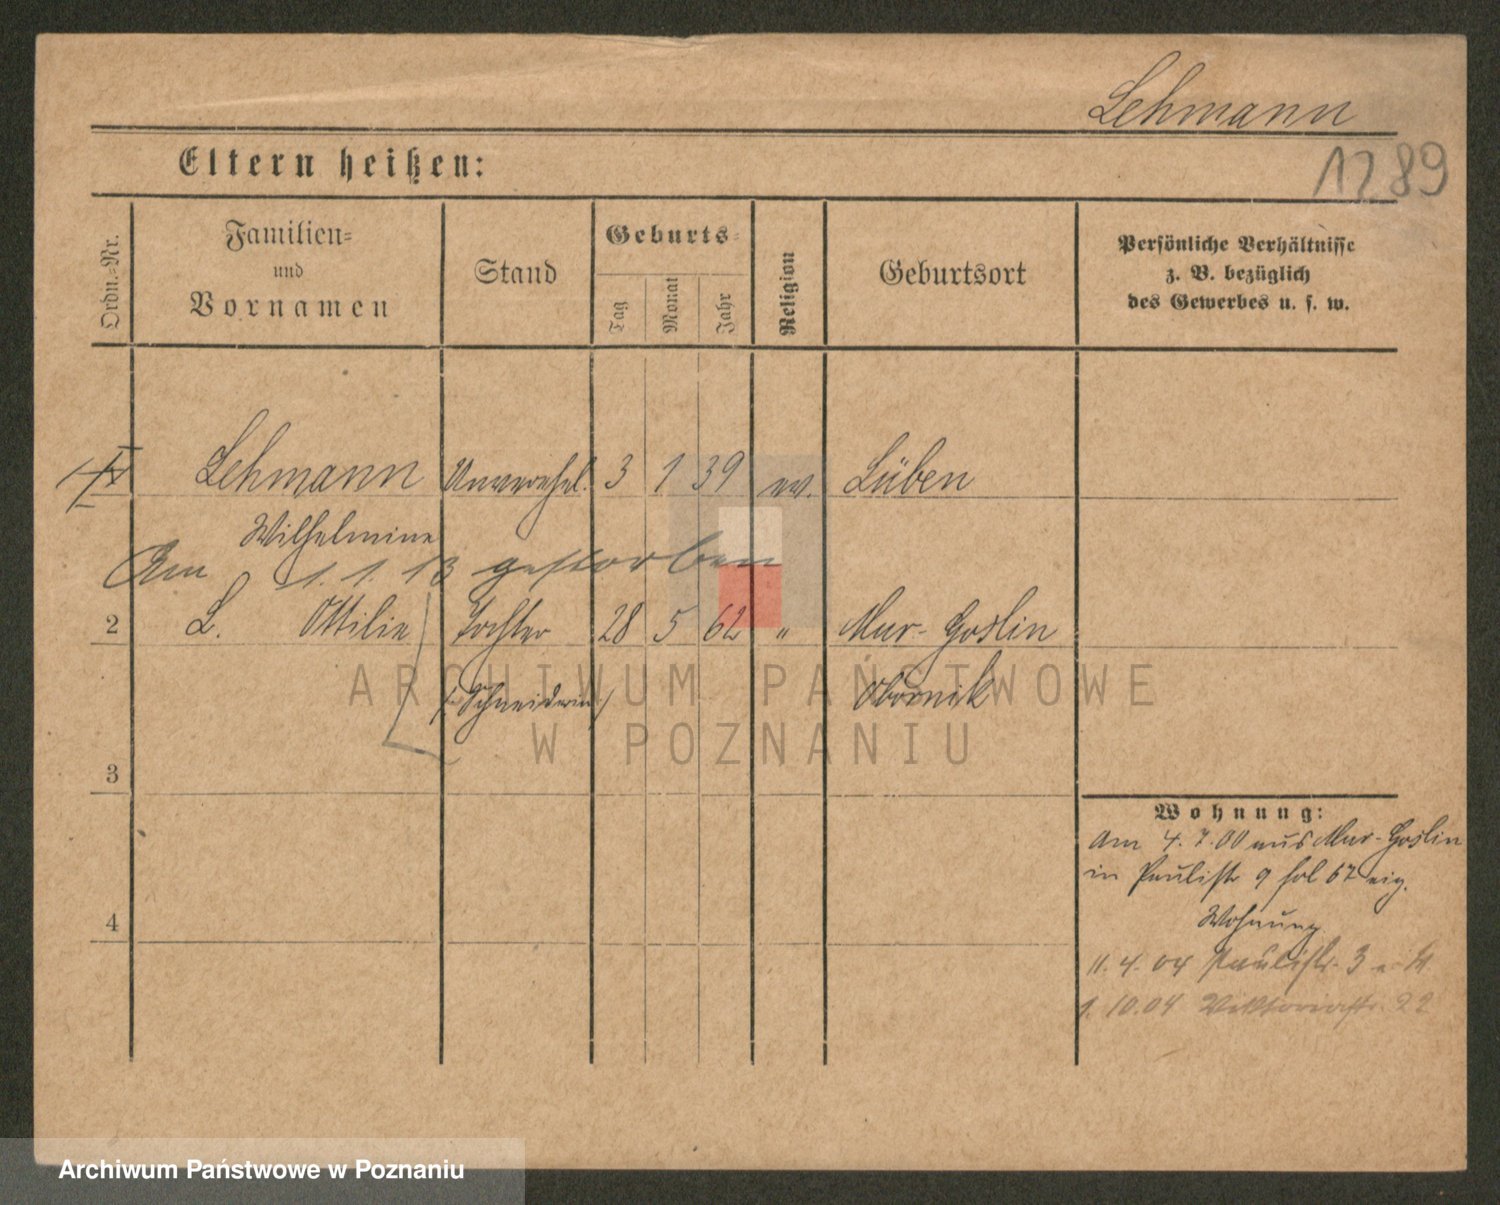 Lehmann
1289
Eltern heißen:
Ordn.-Nr.
Familien-
und
Vornamen
Stand
Geburts-
Tag
Monat
Jahr
Religion
Geburtsort
Persönliche Verhältnisse
z. B. bezüglich
des Gewerbes u. s. w.
Lehmann Unverehel. 3 1 39 ev. Lüben
Wilhelmine
Am 1. 1. 13 gestorben
2 L. Ottilie Tochter 28 5 62 " Mur-Goslin
Schneiderin Obornik
3
4
Wohnung:
Am 4. 7. 00 aus Mur-Goslin
in Paulistr 9 fol 57 eig.
Wohnung
11. 4. 04 Paulistr. 3
1. 10.04 Viktoriastr. 22
ARCHIWUM PAŃSTWOWE
W POZNANIU
Archiwum Państwowe w Poznaniu